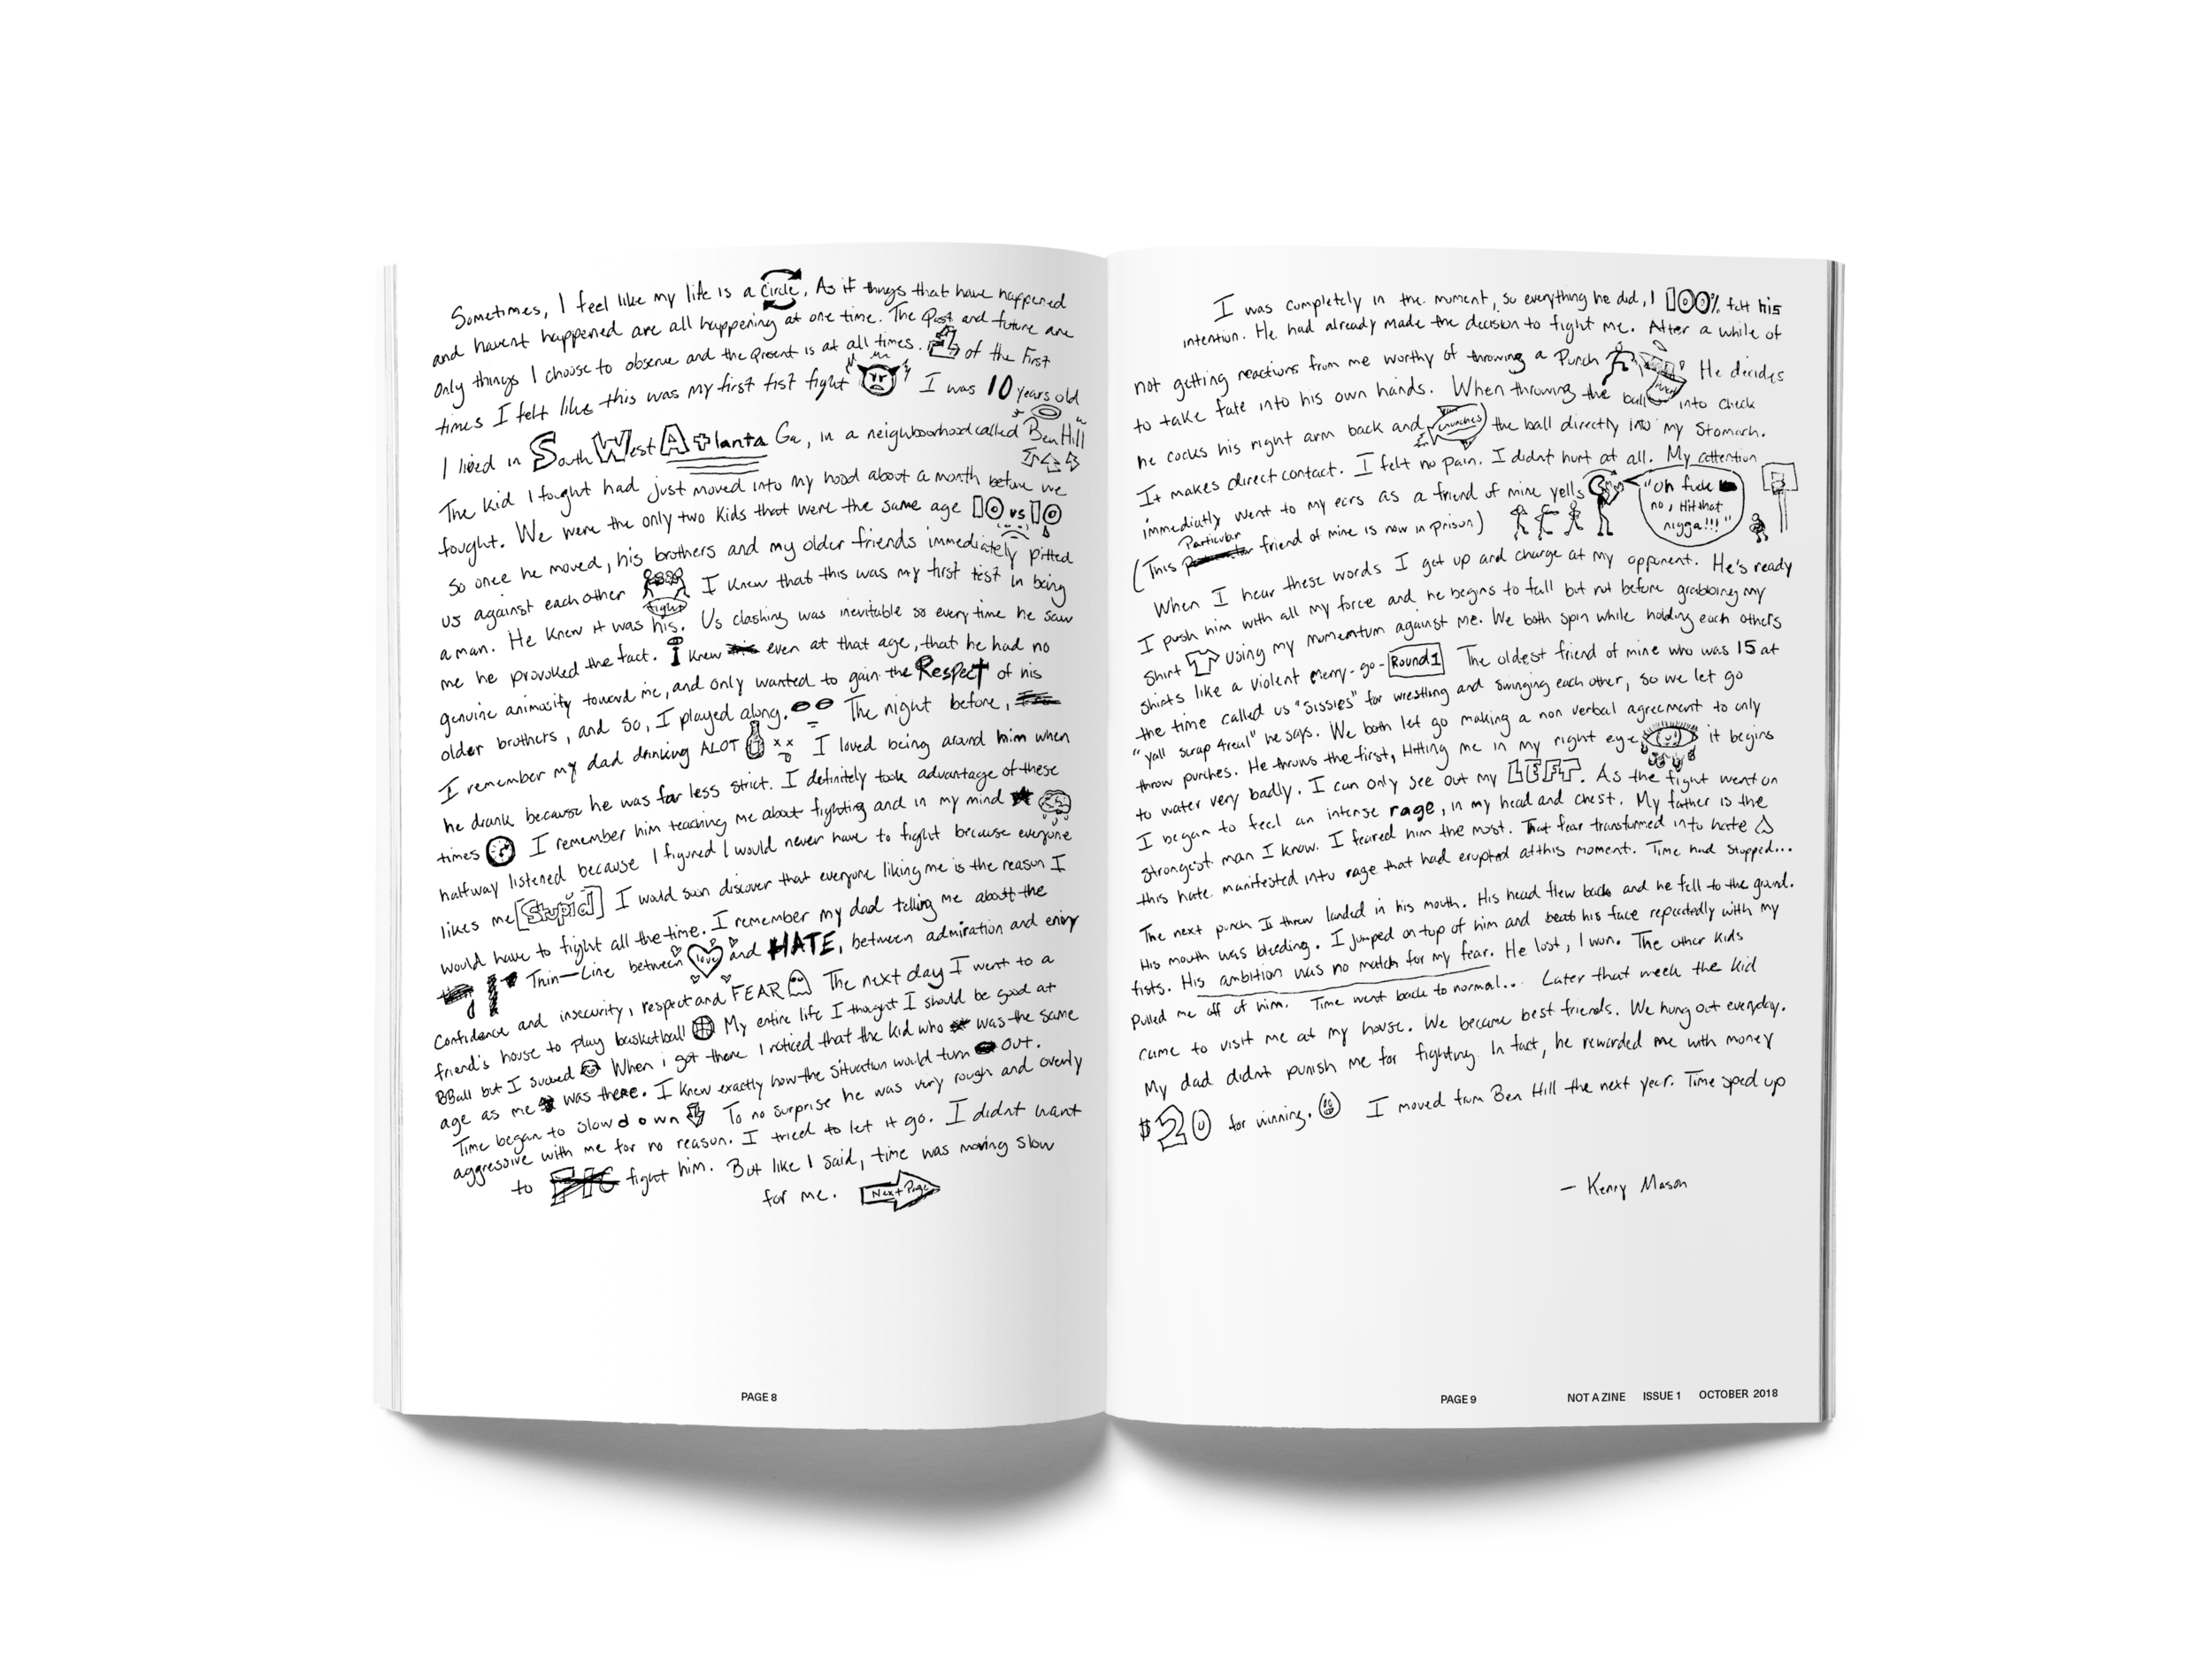 Sometimes, I feel like my life is a circle, As if things that have happened
and havent happened are all happening at one time. The past and future are
only things I choose to observe and the present is at all times. 1 of the First
times I felt like this was my first fist fight I was 10 years old
I lived in South West Atlanta Ga, in a neighbourhood called Ben Hill
The kid I fought had just moved into my hood about a month before we
fought. We were the only two kids that were the same age 10 vs 10
so once he moved, his brothers and my older friends immediately pitted
us against each other fight I knew that this was my first test in being
a man. He knew it was his. Us clashing was inevitable so every time he saw
me he provoked the fact. I knew even at that age, that he had no
genuine animosity toward me, and only wanted to gain the Respect of his
older brothers, and so, I played along. The night before,
I remember my dad drinking ALOT I loved being around him when
he drank because he was far less strict. I definitely took advantage of these
times I remember him teaching me about fighting and in my mind
halfway listened because I figured I would never have to fight because everyone
likes me [Stupid] I would soon discover that everyone liking me is the reason I
would have to fight all the time. I remember my dad telling me about the
Thin-Line between love and HATE, between admiration and envy
Confidence and insecurity, respect and FEAR The next day I went to a
friend's house to play basketball My entire life I thought I should be good at
BBall but I sucked When i got there I noticed that the kid who was the same
age as me was there. I knew exactly how the situation would turn out.
Time began to slow down To no surprise he was very rough and overly
aggressive with me for no reason. I tried to let it go. I didnt want
to fight him. But like I said, time was moving slow
for me. Next Page
PAGE 8
I was completely in the moment, so everything he did, I 100% felt his
intention. He had already made the decision to fight me. After a while of
not getting reactions from me worthy of throwing a Punch He decides
to take fate into his own hands. When throwing the ball into check
he cocks his right arm back and launches the ball directly into my Stomach.
It makes direct contact. I felt no pain. I didnt hurt at all. My attention
immediatly went to my ears as a friend of mine yells "Oh fuck no, Hit that nigga!!!"
(This Particular friend of mine is now in prison)
When I hear these words I get up and charge at my opponent. He's ready
I push him with all my force and he begins to fall but not before grabbing my
Shirt using my momentum against me. We both spin while holding each others
shirts like a violent merry-go-Round 1 The oldest friend of mine who was 15 at
the time called us "Sissies" for wrestling and swinging each other, so we let go
"yall scrap 4real" he says. We both let go making a non verbal agreement to only
throw punches. He throws the first, Hitting me in my right eye it begins
to water very badly. I can only see out my LEFT. As the fight went on
I began to feel an intense rage, in my head and chest. My father is the
strongest man I know. I feared him the most. That fear transformed into hate
this hate manifested into rage that had erupted at this moment. Time had stopped...
The next punch I threw landed in his mouth. His head flew back and he fell to the ground.
His mouth was bleeding. I jumped on top of him and beat his face repeatedly with my
fists. His ambition was no match for my fear. He lost, I won. The other kids
pulled me off of him. Time went back to normal... Later that week the kid
came to visit me at my house. We became best friends. We hung out everyday.
My dad didnt punish me for fighting. In fact, he rewarded me with money
$20 for winning. I moved from Ben Hill the next year. Time sped up
— Kenny Mason
PAGE 9 NOT A ZINE ISSUE 1 OCTOBER 2018